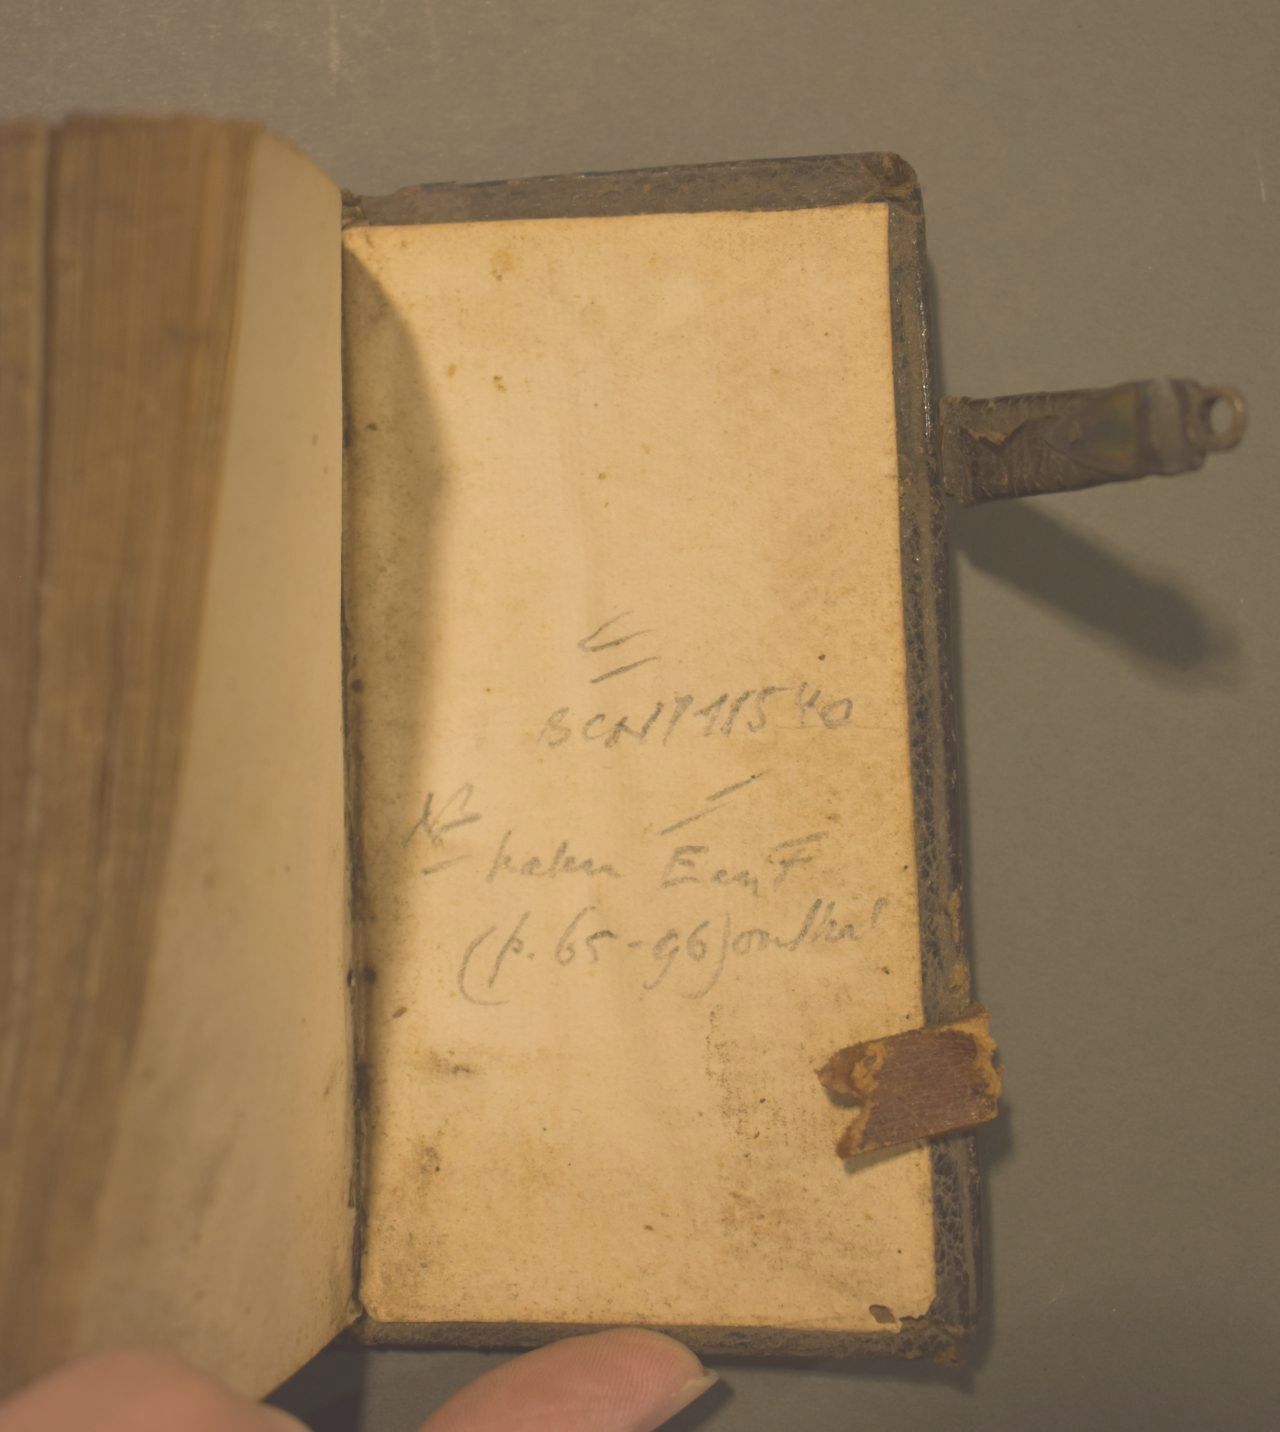 BCN 118540
Nb
katern E en F
(p. 65-96) ontbr.